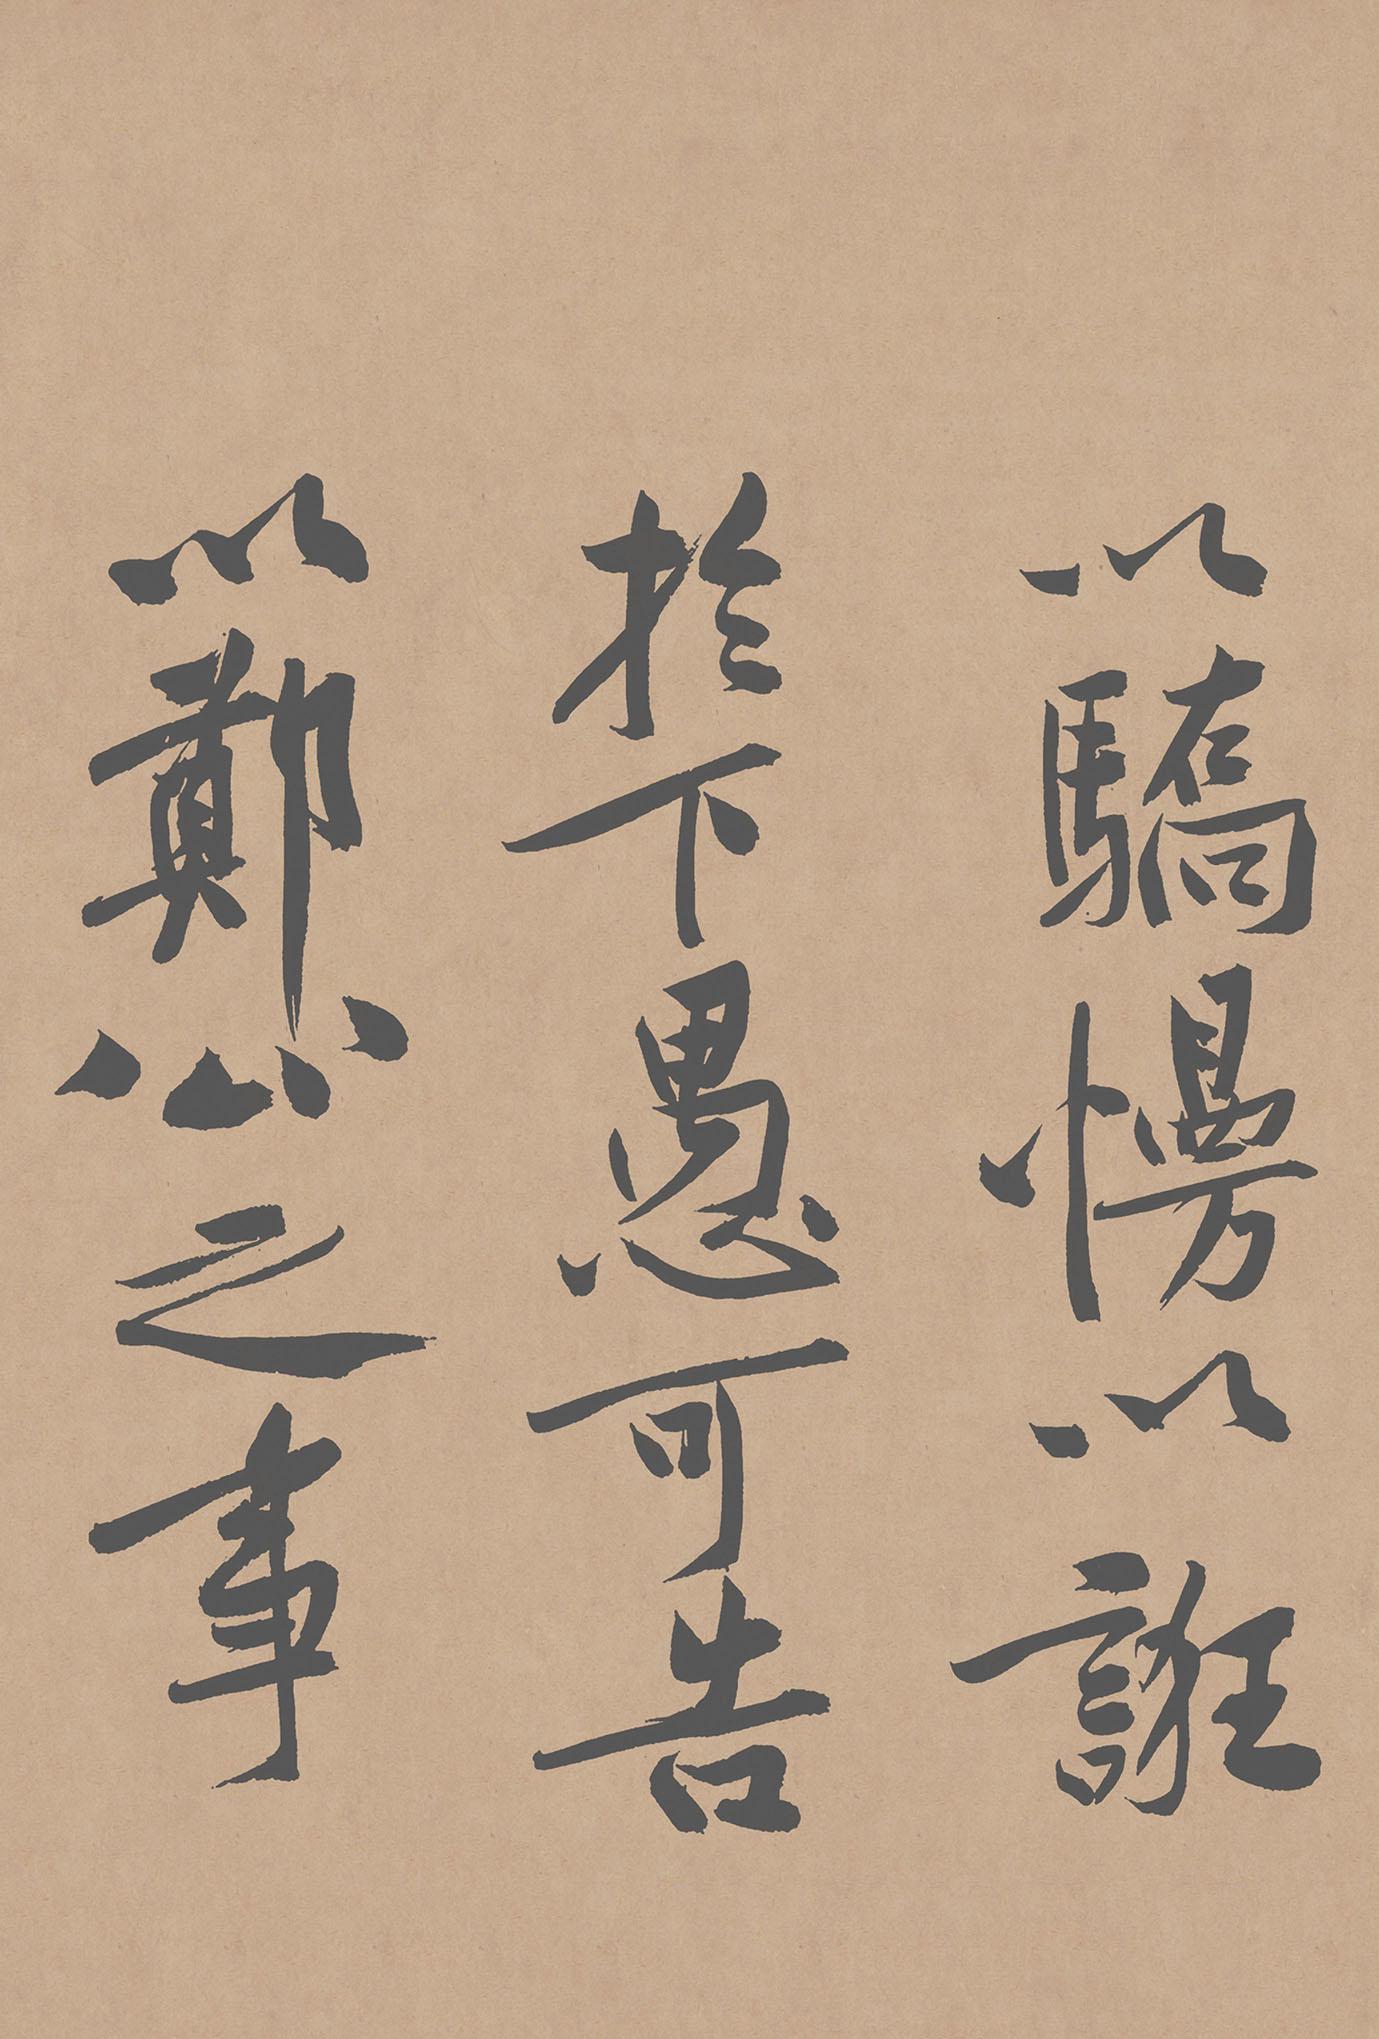 以驕慢以誑
於下愚可告
以鄭公之事